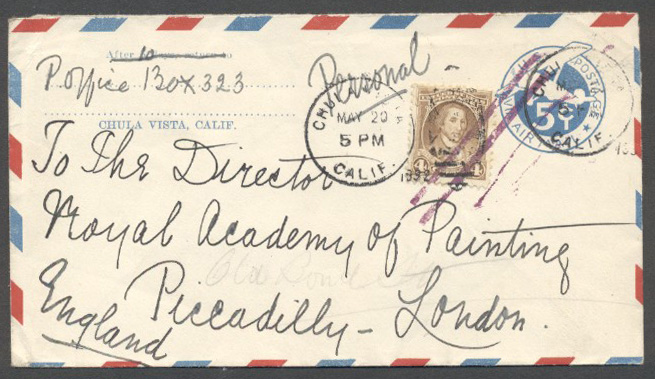 After 10 days, return to
P. Office Box 323
CHULA VISTA, CALIF.
Personal -
CHULA VISTA
MAY 20
5 PM
CALIF.
1932
4
POSTAGE
5¢
AIR
CALIF.
193
To The Director
Royal Academy of Painting
Piccadilly - London.
England